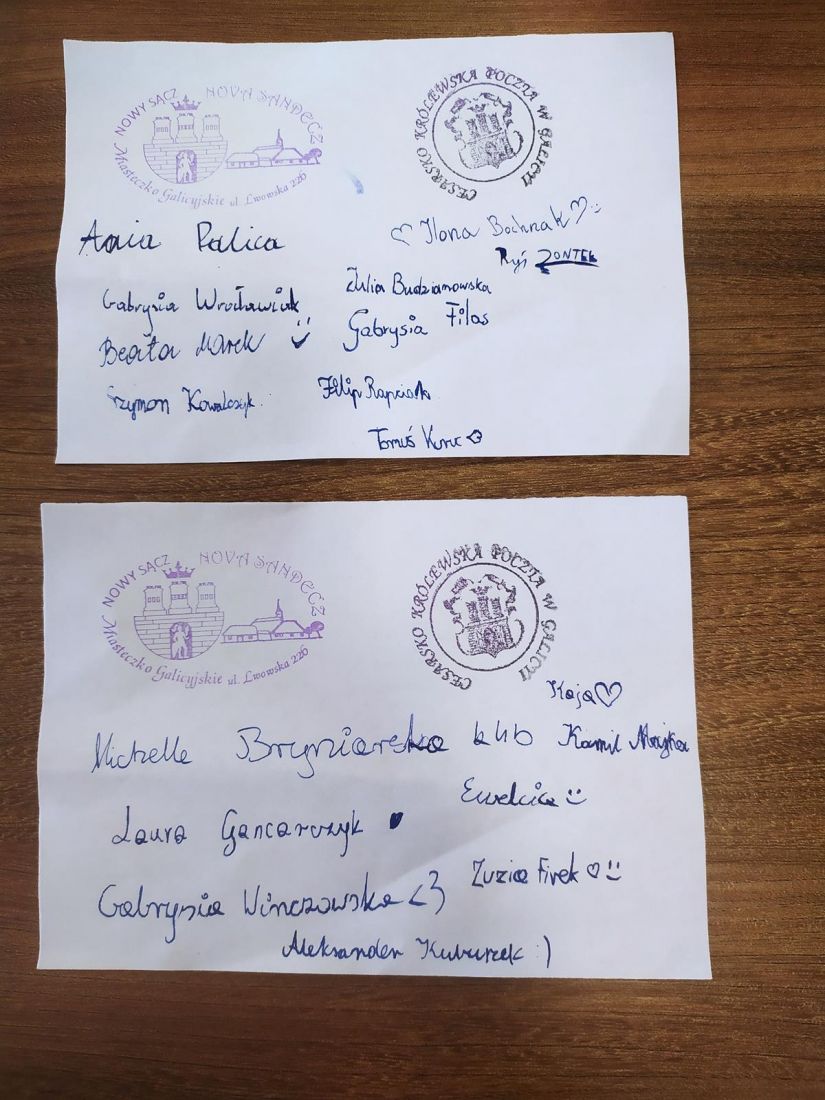 NOWY SĄCZ NOVA SANDECZ
Miasteczko Galicyjskie ul. Lwowska 226
CESARSKO KRÓLEWSKA POCZTA W GALICYI
Ania Palica
Ilona Bochnak
Ryś ZONTEK
Julia Budzianowska
Gabrysia Wrocławiak
Gabrysia Filas
Beata Marek
Szymon Kowalczyk
Filip
Tomuś Kuruc
NOWY SĄCZ NOVA SANDECZ
Miasteczko Galicyjskie ul. Lwowska 226
CESARSKO KRÓLEWSKA POCZTA W GALICYI
Kaja ♡
Michelle Bryniarska kl4b
Kamil Majka
Ewelcia
Laura Gancarczyk
Zuzia Firek
Gabrysia Winczowska <3
Aleksander :)